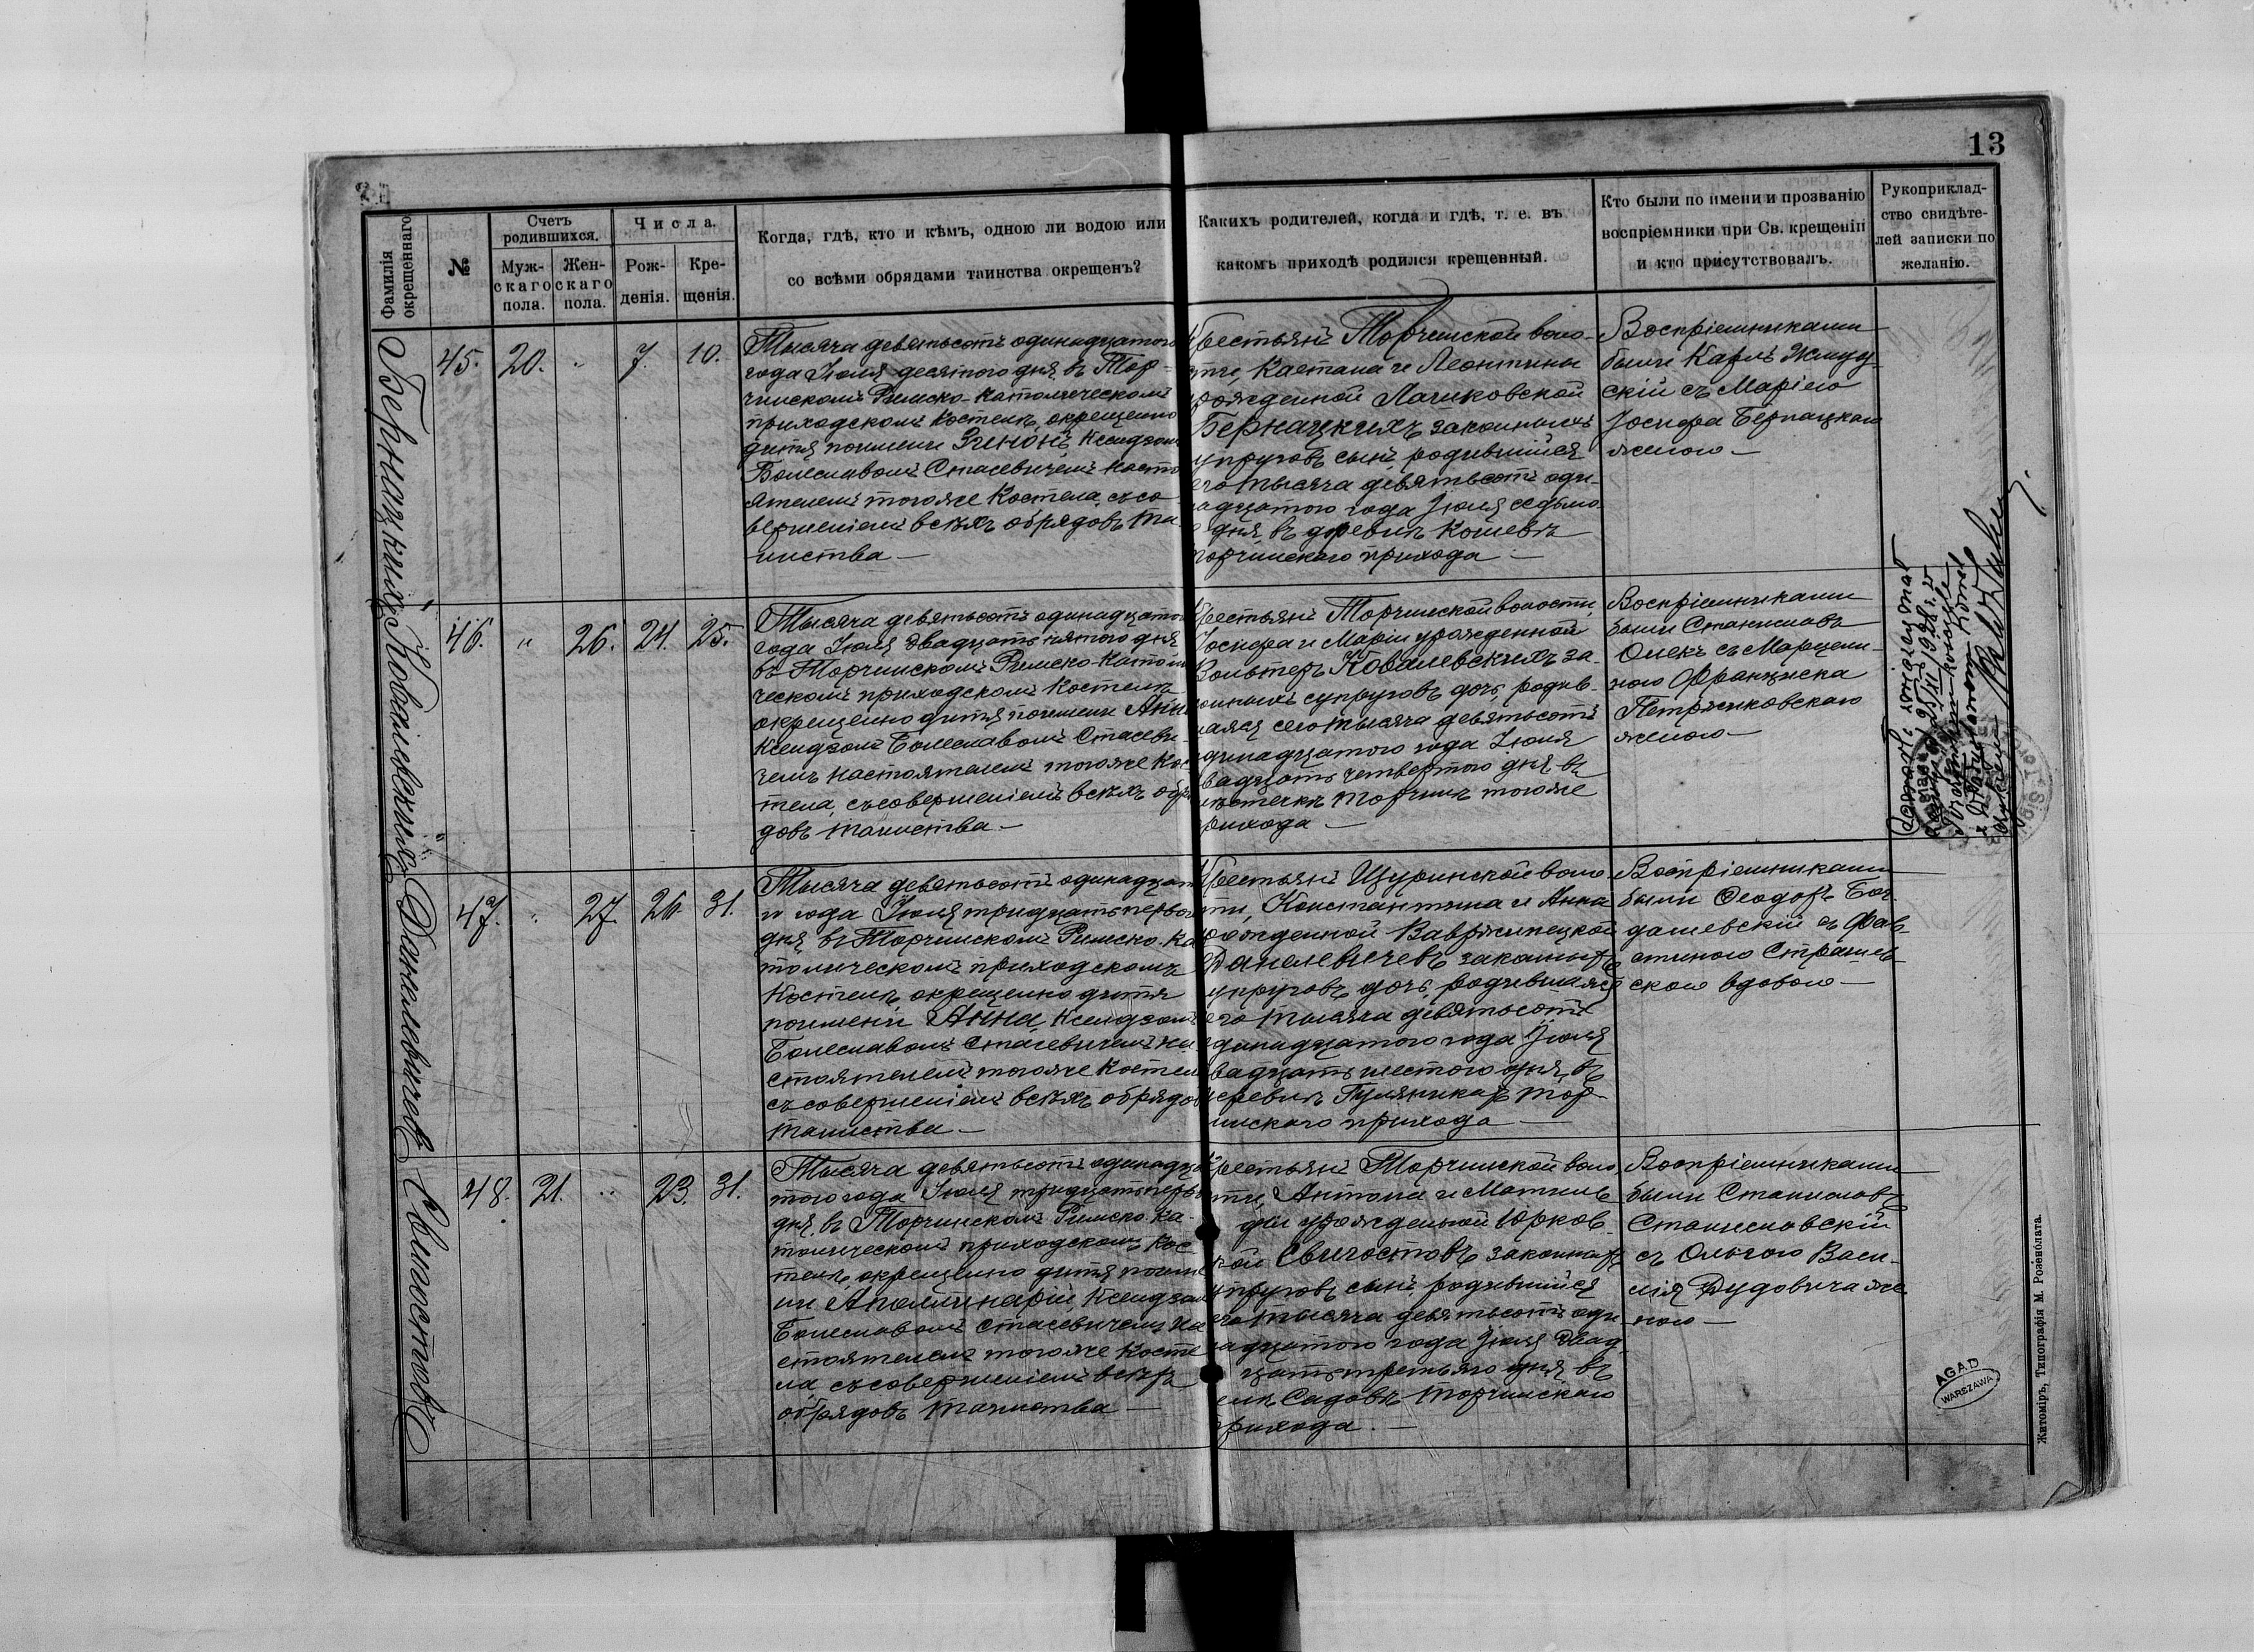 13
Фамилія окрещеннаго
№
Счетъ родившихся.
Муж-
скаго
пола.
Жен-
скаго
пола.
Числа.
Рож-
денія.
Кре-
щенія.
Когда, гдѣ, кто и кѣмъ, одною ли водою или
со всѣми обрядами таинства окрещенъ?
Какихъ родителей, когда и гдѣ, т. е. въ
какомъ приходѣ родился крещенный.
Кто были по имени и прозванію
воспріемники при Св. крещеніи
и кто присутствовалъ.
Рукоприклад-
ство свидѣте-
лей записки по
желанію.
Бернацкихъ
45. 20. " 7. 10.
Тысяча девятьсотъ одинадцатого
года Іюля десятого дня, въ Тор-
чинскомъ Римско-Католическомъ
приходскомъ Костелѣ, окрещенно
дитя поимени Зинонъ, Ксендзомъ
Болеславомъ Стасевичемъ Насто
ятелемъ тогоже Костела, съ со
вершеніемъ всѣхъ обрядовъ та-
инства —
Крестьянъ Торчинской воло-
сти, Каетана и Леонтины
урожденной Лачковской
Бернацкихъ законныхъ
супруговъ сынъ, родившійся
сего тысяча девятьсотъ оди-
надцатого года Іюля седьмо
го дня, въ деревнѣ Кошевѣ
Торчинскаго прихода —
Воспріемниками
были Карлъ Жмуд-
скій съ Маріею
Іосифа Бернацкаго
женою —
Ковалевскихъ
46. " 26. 24. 25.
Тысяча девятьсотъ одинадцатого
года Іюля двадцать пятого дня
въ Торчинскомъ Римско-Католи
ческомъ приходскомъ Костелѣ
окрещенно дитя поимени Анна
Ксендзомъ Болеславомъ Стасеви-
чемъ Настоятелемъ тогоже Кос
тела, съ совершеніемъ всѣхъ обря
довъ таинства. —
Крестьянъ Торчинской волости,
Іосифа и Маріи урожденной
Вольтеръ Ковалевскихъ за-
конныхъ супруговъ дочь, родив-
шаяся сего тысяча девятьсотъ
одинадцатого года Іюля
двадцать четвертого дня, въ
мѣстечкѣ Торчинѣ тогоже
прихода —
Воспріемниками
были Станиславъ
Олекъ съ Марцели-
ною Франциска
Петриковскаго
женою —
Данилевичевъ
47. " 27. 26. 31.
Тысяча девятьсотъ одинадцат
го года Іюля тридцать первого
дня въ Торчинскомъ Римско-Ка
толическомъ приходскомъ
Костелѣ, окрещенно дитя
поимени Анна, Ксендзомъ
Болеславомъ Стасевичемъ На
стоятелемъ тогоже Костела
съ совершеніемъ всѣхъ обрядовъ
таинства —
Крестьянъ Щуринской воло-
сти, Константина и Анны
урожденной Вавржинецкой
Данилевичевъ законныхъ
супруговъ дочь, родившаяся
сего тысяча девятьсотъ
одинадцатого года Іюля
двадцать шестого дня, въ
деревнѣ Гуляникахъ Тор-
чинскаго прихода —
Воспріемниками
были Ѳеодоръ Бог-
дашевскій съ Фав-
стиною Страшев-
скою вдовою —
Свигостовъ
48. 21. " 23. 31.
Тысяча девятьсотъ одинадца
того года Іюля тридцать перв
дня, въ Торчинскомъ Римско-Ка-
толическомъ приходскомъ Кос-
телѣ, окрещенно дитя поиме
ни Аполлинарій, Ксендзомъ
Болеславомъ Стасевичемъ На
стоятелемъ тогоже Косте
ла съ совершеніемъ всѣхъ
обрядовъ таинства —
Крестьянъ Торчинской воло
сти, Антона и Матиль
ды урожденной Юрков-
ской Свигостовъ законныхъ
супруговъ сынъ родившійся
сего тысяча девятьсотъ оди-
надцатого года Іюля двад
цать третьяго дня въ
селѣ Садовѣ Торчинскаго
прихода. —
Воспріемниками
были Станиславъ
Станиславскій
съ Ольгою Васи-
лія Дудовича же
ною —
AGAD
WARSZAWA
Житоміръ, Типографія М. Розенблата.